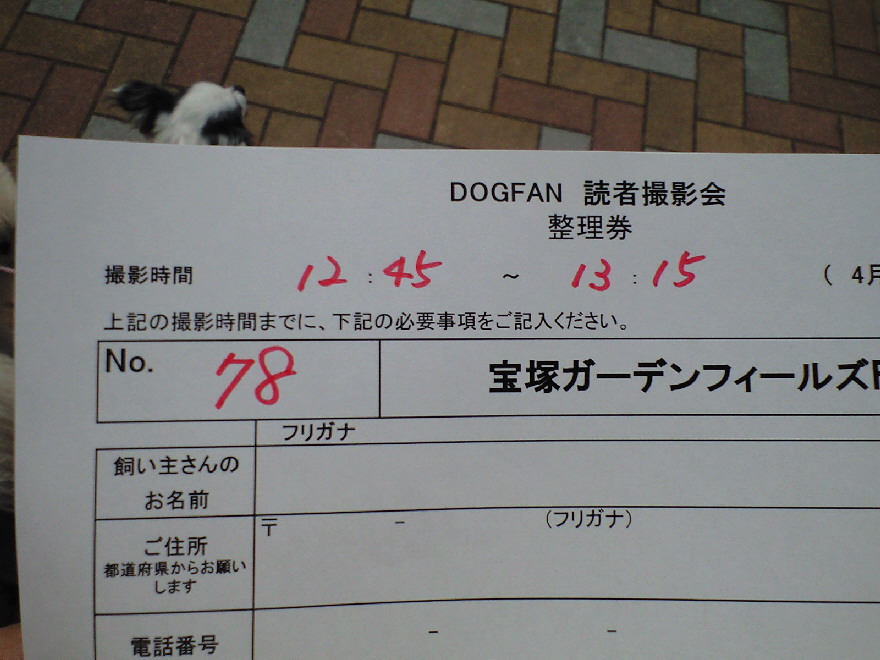 DOGFAN 読者撮影会
整理券
撮影時間 12:45 ~ 13:15 ( 4月
上記の撮影時間までに、下記の必要事項をご記入ください。
No. 78 宝塚ガーデンフィールズ
フリガナ
飼い主さんの
お名前
〒 - (フリガナ)
ご住所
都道府県からお願い
します
電話番号 - -